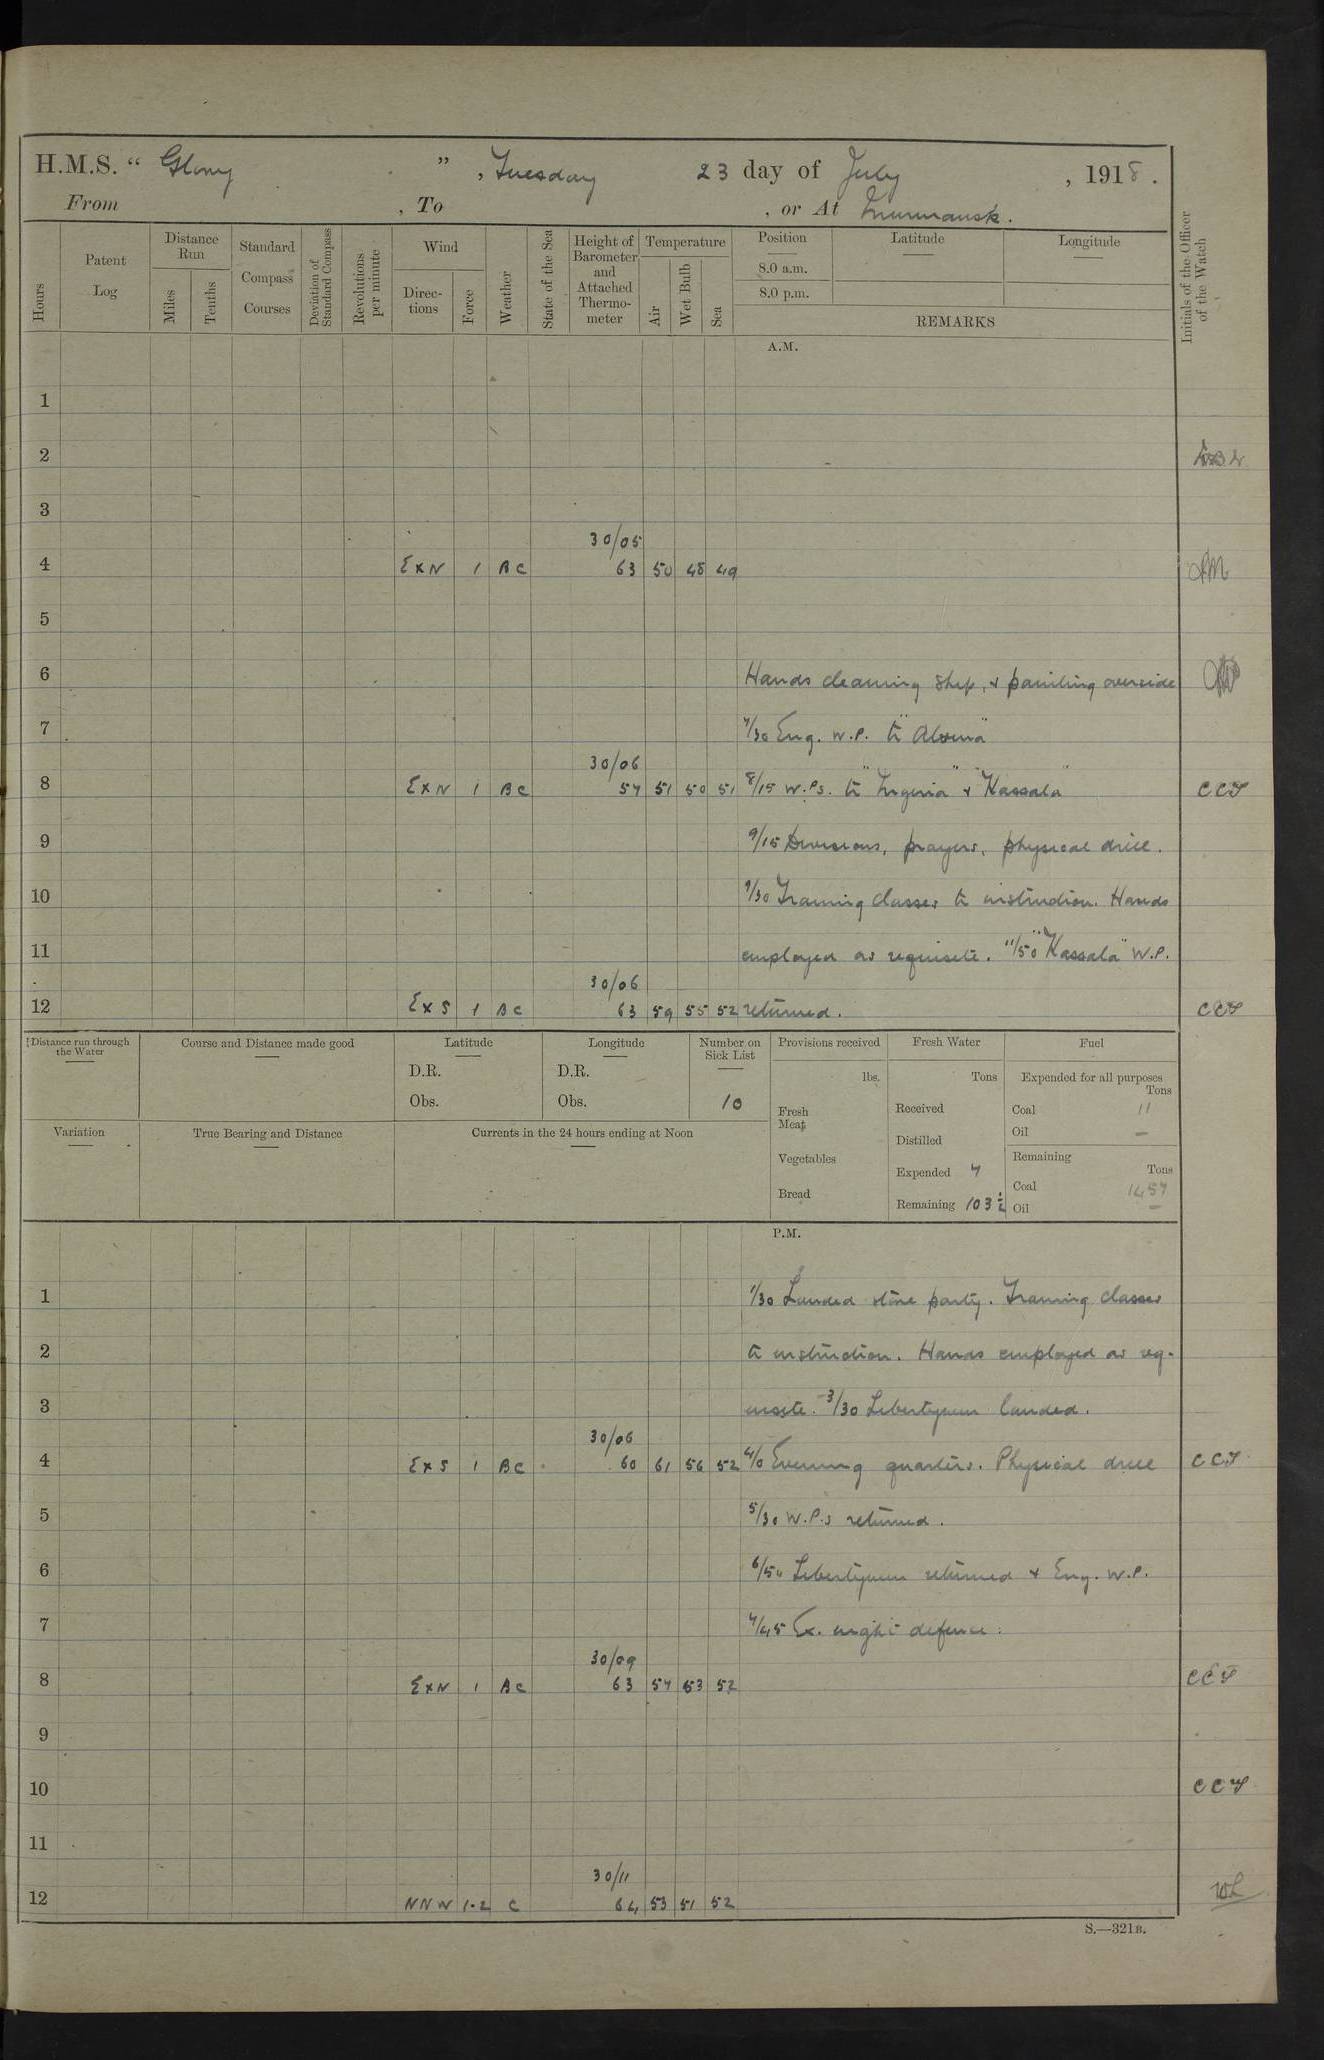 H.M.S. “ Glory ”, Tuesday 23 day of July, 1918.
From , To , or At Murmansk.
Hours
Patent Log
Distance Run
Miles
Tenths
Standard Compass Courses
Deviation of Standard Compass
Revolutions per minute
Wind
Directions
Force
Weather
State of the Sea
Height of Barometer and Attached Thermometer
Temperature
Air
Wet Bulb
Sea
Position
8.0 a.m.
8.0 p.m.
Latitude
Longitude
REMARKS
Initials of the Officer of the Watch
A.M.
1
2
3
30/05
4 ExN 1 BC 63 50 48 49
5
6 Hands cleaning ship, & painting overside
7 7/30 Eng. W.P. to "Alsina"
30/06
8 ExN 1 BC 57 51 50 51 8/15 W.Ps. to " " & "Kassala" CCT
9 9/15 Divisions, prayers, physical drill.
10 9/30 Training classes to instruction. Hands
11 employed as requisite. 11/50 "Kassala" W.P.
30/06
12 ExS 1 BC 63 59 55 52 returned. CCT
Distance run through the Water
Course and Distance made good
Latitude
D.R.
Obs.
Longitude
D.R.
Obs.
Number on Sick List
10
Provisions received
lbs.
Fresh Meat
Vegetables
Bread
Fresh Water
Tons
Received
Distilled
Expended 7
Remaining 103½
Fuel
Expended for all purposes
Tons
Coal 11
Oil —
Remaining
Tons
Coal 1457
Oil —
Variation
True Bearing and Distance
Currents in the 24 hours ending at Noon
P.M.
1 1/30 Landed store party. Training classes
2 to instruction. Hands employed as req-
3 uisite. 3/30 Libertymen landed.
30/06
4 ExS 1 BC 60 61 56 52 4/0 Evening quarters. Physical drill CCT
5 5/30 W.P.s returned.
6 6/50 Libertymen returned & Eng. W.P.
7 7/45 Ex. night defence.
30/09
8 ExN 1 BC 63 57 53 52 CCT
9
10 CCT
11
30/11
12 NNW 1-2 C 64 53 51 52
S.—321B.